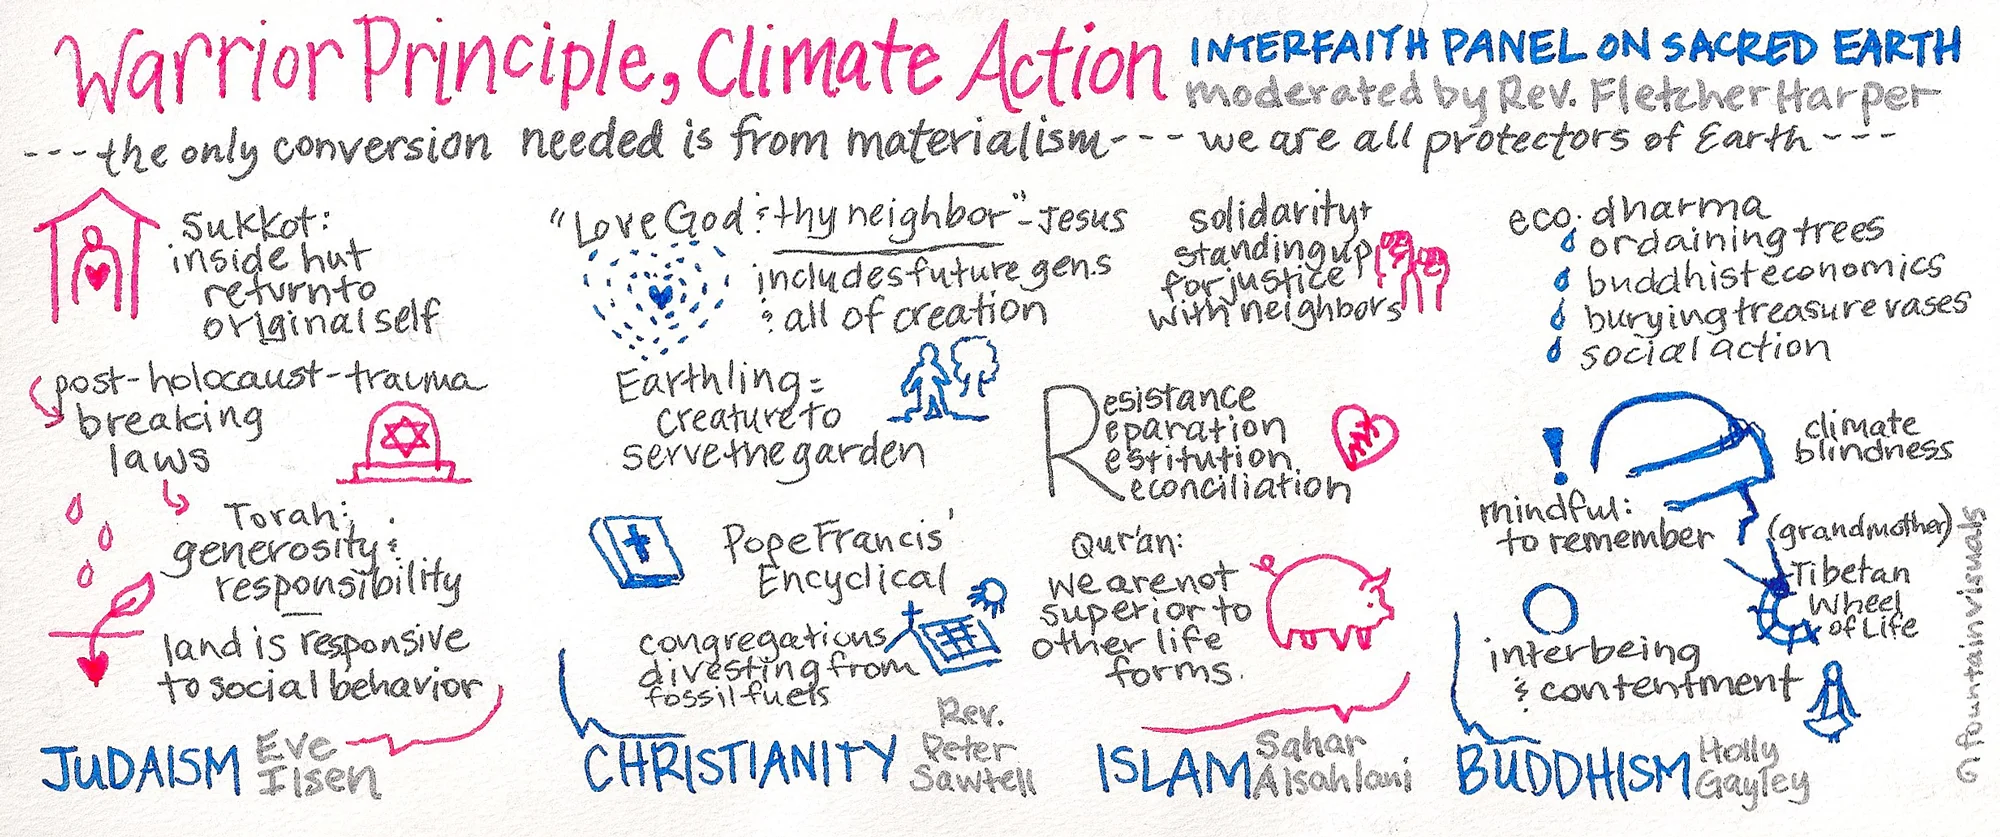 Warrior Principle, Climate Action
INTERFAITH PANEL ON SACRED EARTH
moderated by Rev. Fletcher Harper
---the only conversion needed is from materialism--- we are all protectors of Earth---
Sukkot:
inside hut
return to
original self
post-holocaust-trauma
breaking
laws
Torah:
generosity &
responsibility
land is responsive
to social behavior
JUDAISM
Eve
Ilsen
"Love God & thy neighbor"-Jesus
includes future gens
& all of creation
Earthling =
creature to
serve the garden
Pope Francis'
Encyclical
congregations
divesting from
fossil fuels
CHRISTIANITY
Rev.
Peter
Sawtell
solidarity +
standing up
for justice
with neighbors
Resistance
Reparation
Restitution
Reconciliation
Qur'an:
we are not
superior to
other life
forms.
ISLAM
Sahar
Alsahlani
eco-dharma
ordaining trees
buddhist economics
burying treasure vases
social action
climate
blindness
mindful:
to remember
(grandmother)
Tibetan
Wheel
of Life
interbeing
& contentment
BUDDHISM
Holly
Gayley
fountainvisuals